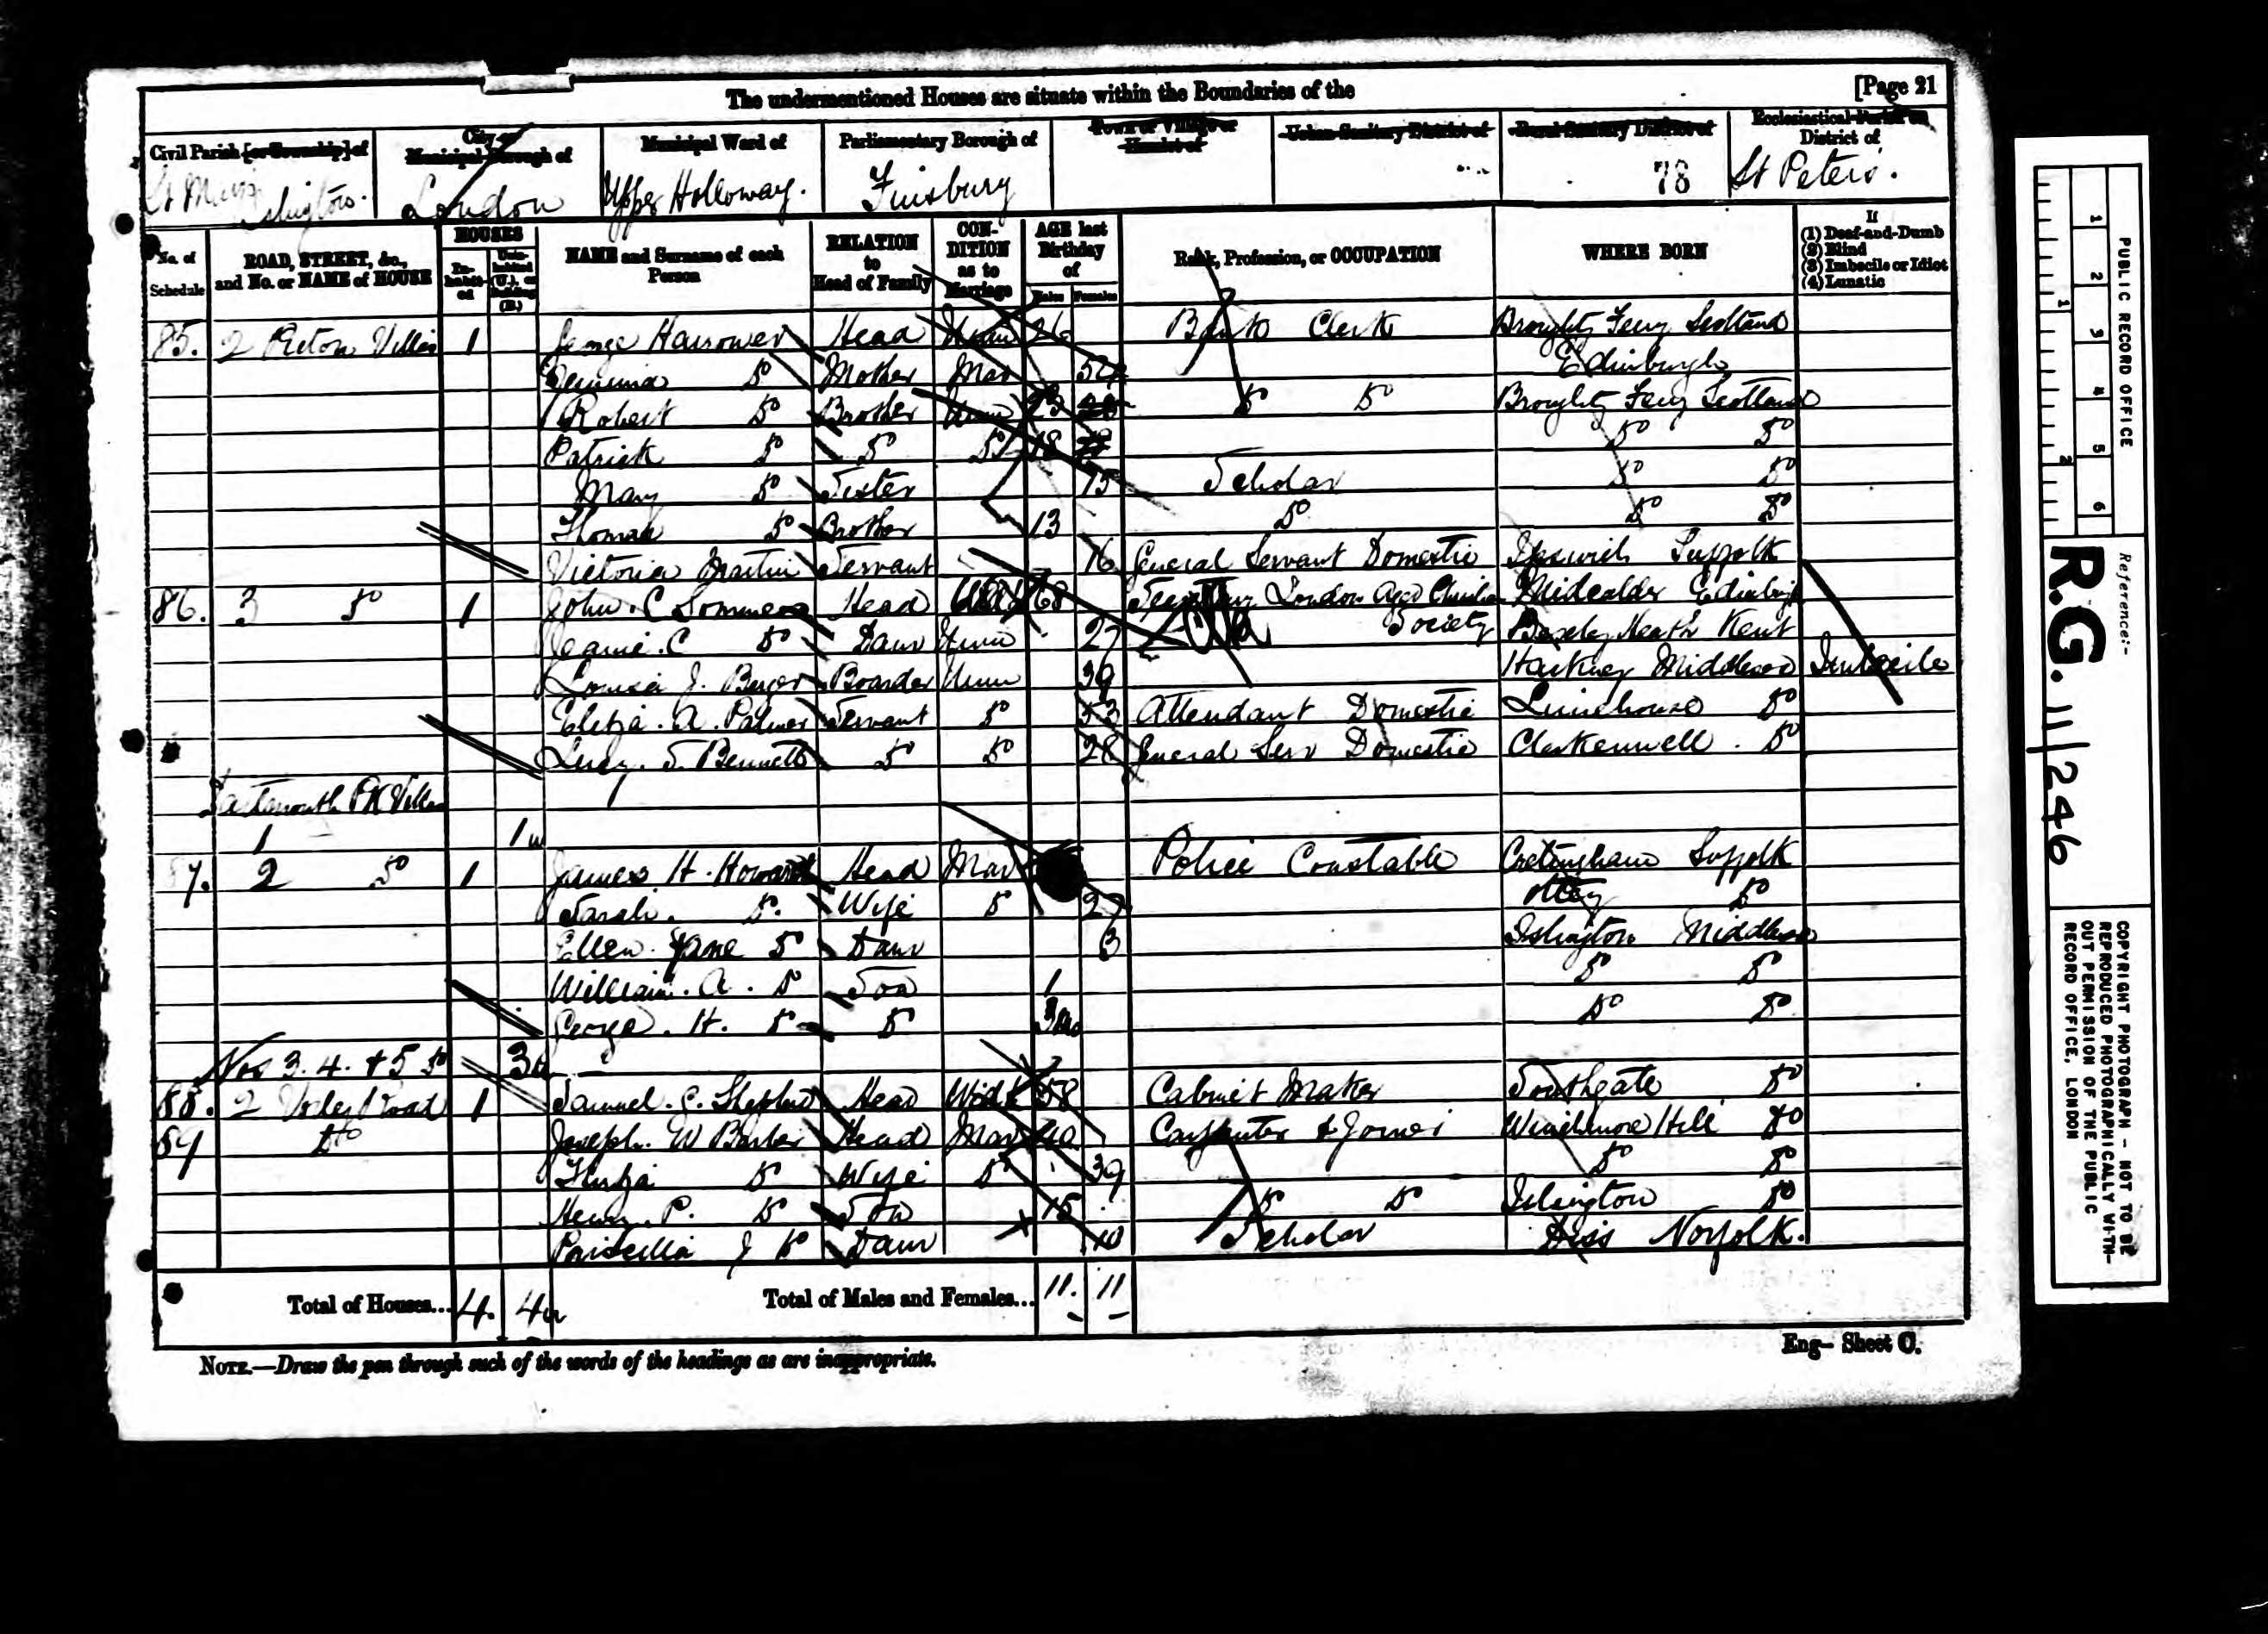 The undermentioned Houses are situate within the Boundaries of the [Page 21
Civil Parish [or Township] of
City or Municipal Borough of
Municipal Ward of
Parliamentary Borough of
Town or Village or Hamlet of
Urban Sanitary District of
Rural Sanitary District of
Ecclesiastical Parish or District of
Islington. London Upper Holloway. Finsbury 78 St Peters.
No. of Schedule
ROAD, STREET, &c., and No. or NAME of HOUSE
HOUSES
In-habit-ed
Unin-habited (U.), or Building (B.)
NAME and Surname of each Person
RELATION to Head of Family
CON-DITION as to Marriage
AGE last Birthday of
Males Females
Rank, Profession, or OCCUPATION
WHERE BORN
If
(1) Deaf-and-Dumb
(2) Blind
(3) Imbecile or Idiot
(4) Lunatic
85. 2 Villas 1 George Harrower Head Unm 26 Bank Clerk Broughty Ferry Scotland
Jemima Do Mother Mar 54 Edinburgh
Robert Do Brother Unm 23 Do Do Broughty Ferry Scotland
Patrick Do Do Do 18 Do Do
Mary Do Sister 15 Scholar Do Do
Thomas Do Brother 13 Do Do Do
Victoria Martin Servant 16 General Servant Domestic Ipswich Suffolk
86. 3 Do 1 John. C Head 68 London Christian Society Midcalder
Jeanie. C Do Daur Unm 27 Kent
Louisa J. Berger Boarder Unm 39 Hackney Middlesex Imbecile
Eliza. A. Palmer Servant Do 53 Attendant Domestic Limehouse Do
Lucy. S. Bennett Do Do 28 General Serv Domestic Clerkenwell. Do
Dartmouth Pk Villas
1 1u
87. 2 Do 1 James. H. Howard Head Mar Police Constable Cretingham Suffolk
Sarah. Do. Wife Do 27 Otley Do
Ellen. Jane Do Daur 3 Islington Middlesex
William. A. Do Son 1 Do Do
George. H. Do Do 3mo Do Do
Nos 3. 4. & 5 Do 3u
88. 2 Road 1 Samuel. Head Widr 58 Cabinet Maker Southgate Do
89 Do Joseph. W Barber Head Mar 40 Carpenter & Joiner Winchmore Hill Do
Do Wife Do 39 Do Do
Henry. P. Do Son 15 Do Do Islington Do
Priscilla J Do Daur 10 Scholar Diss Norfolk.
Total of Houses... 4. 4u Total of Males and Females... 11. 11
NOTE.—Draw the pen through such of the words of the headings as are inappropriate.
Eng— Sheet C.
PUBLIC RECORD OFFICE
1 2 3 4 5 6
1 2
Reference:-
R.G. 11/246
COPYRIGHT PHOTOGRAPH - NOT TO BE
REPRODUCED PHOTOGRAPHICALLY WITH-
OUT PERMISSION OF THE PUBLIC
RECORD OFFICE, LONDON